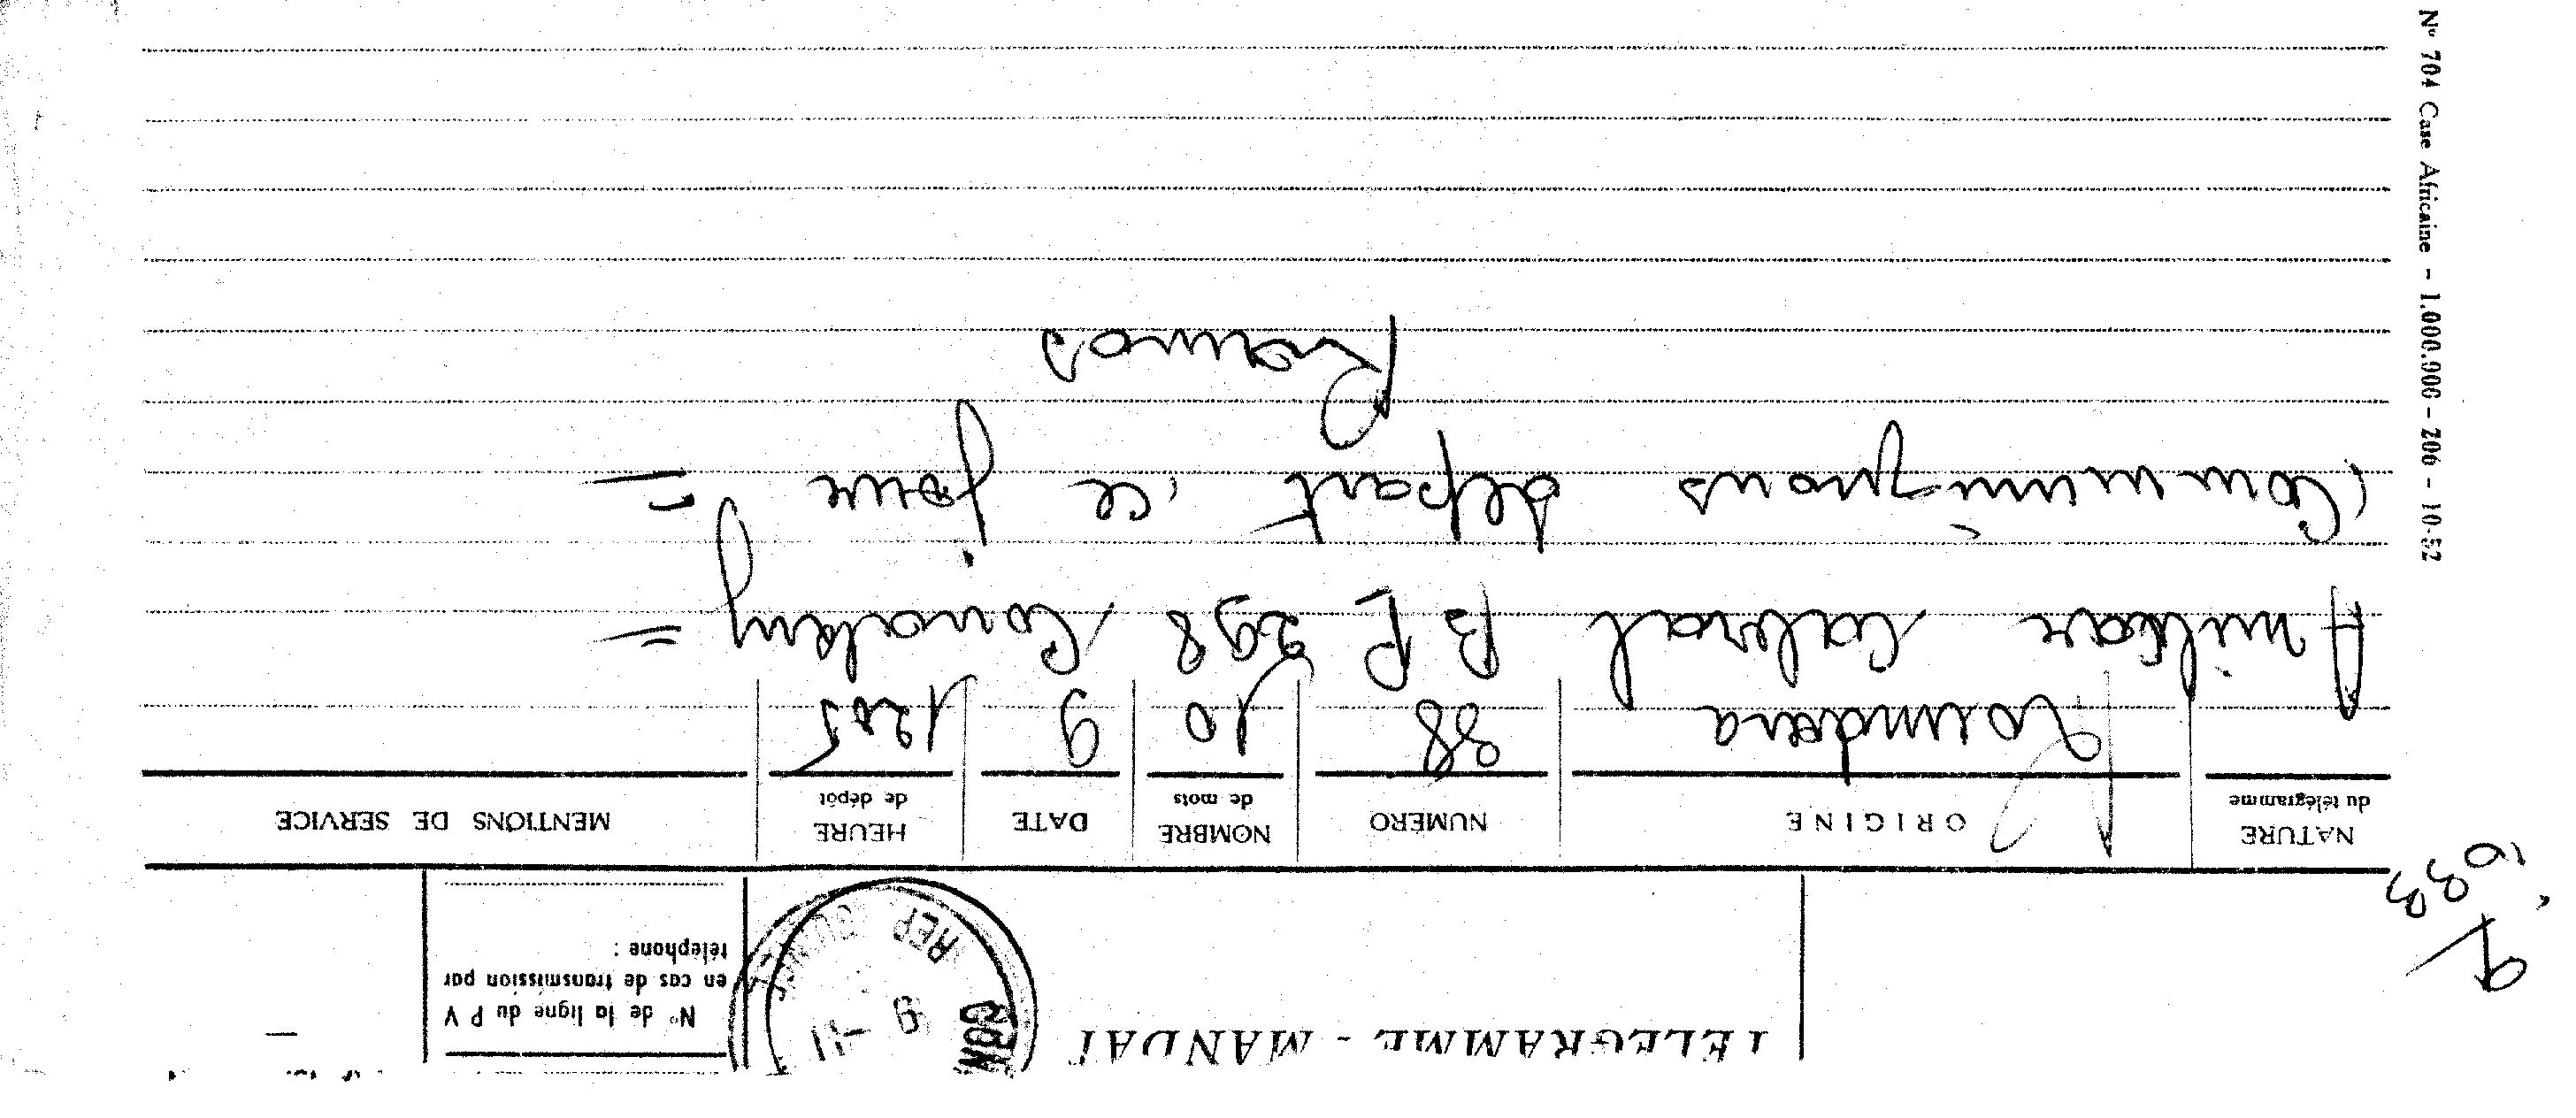 TELEGRAMME - MANDAT
REP GUINEE
CON
9 - 11
N° de la ligne du P V
en cas de transmission par
téléphone :
9
1033
NATURE
du télégramme
ORIGINE
NUMÉRO
NOMBRE
de mots
DATE
HEURE
de dépôt
MENTIONS DE SERVICE
Koundara 88 10 9 1205
Amilcar Cabral B P 298 Conakry =
Communiquons départ ce jour =
Ramos
N° 704 Case Africaine - 1.000.000 - 206 - 10-52